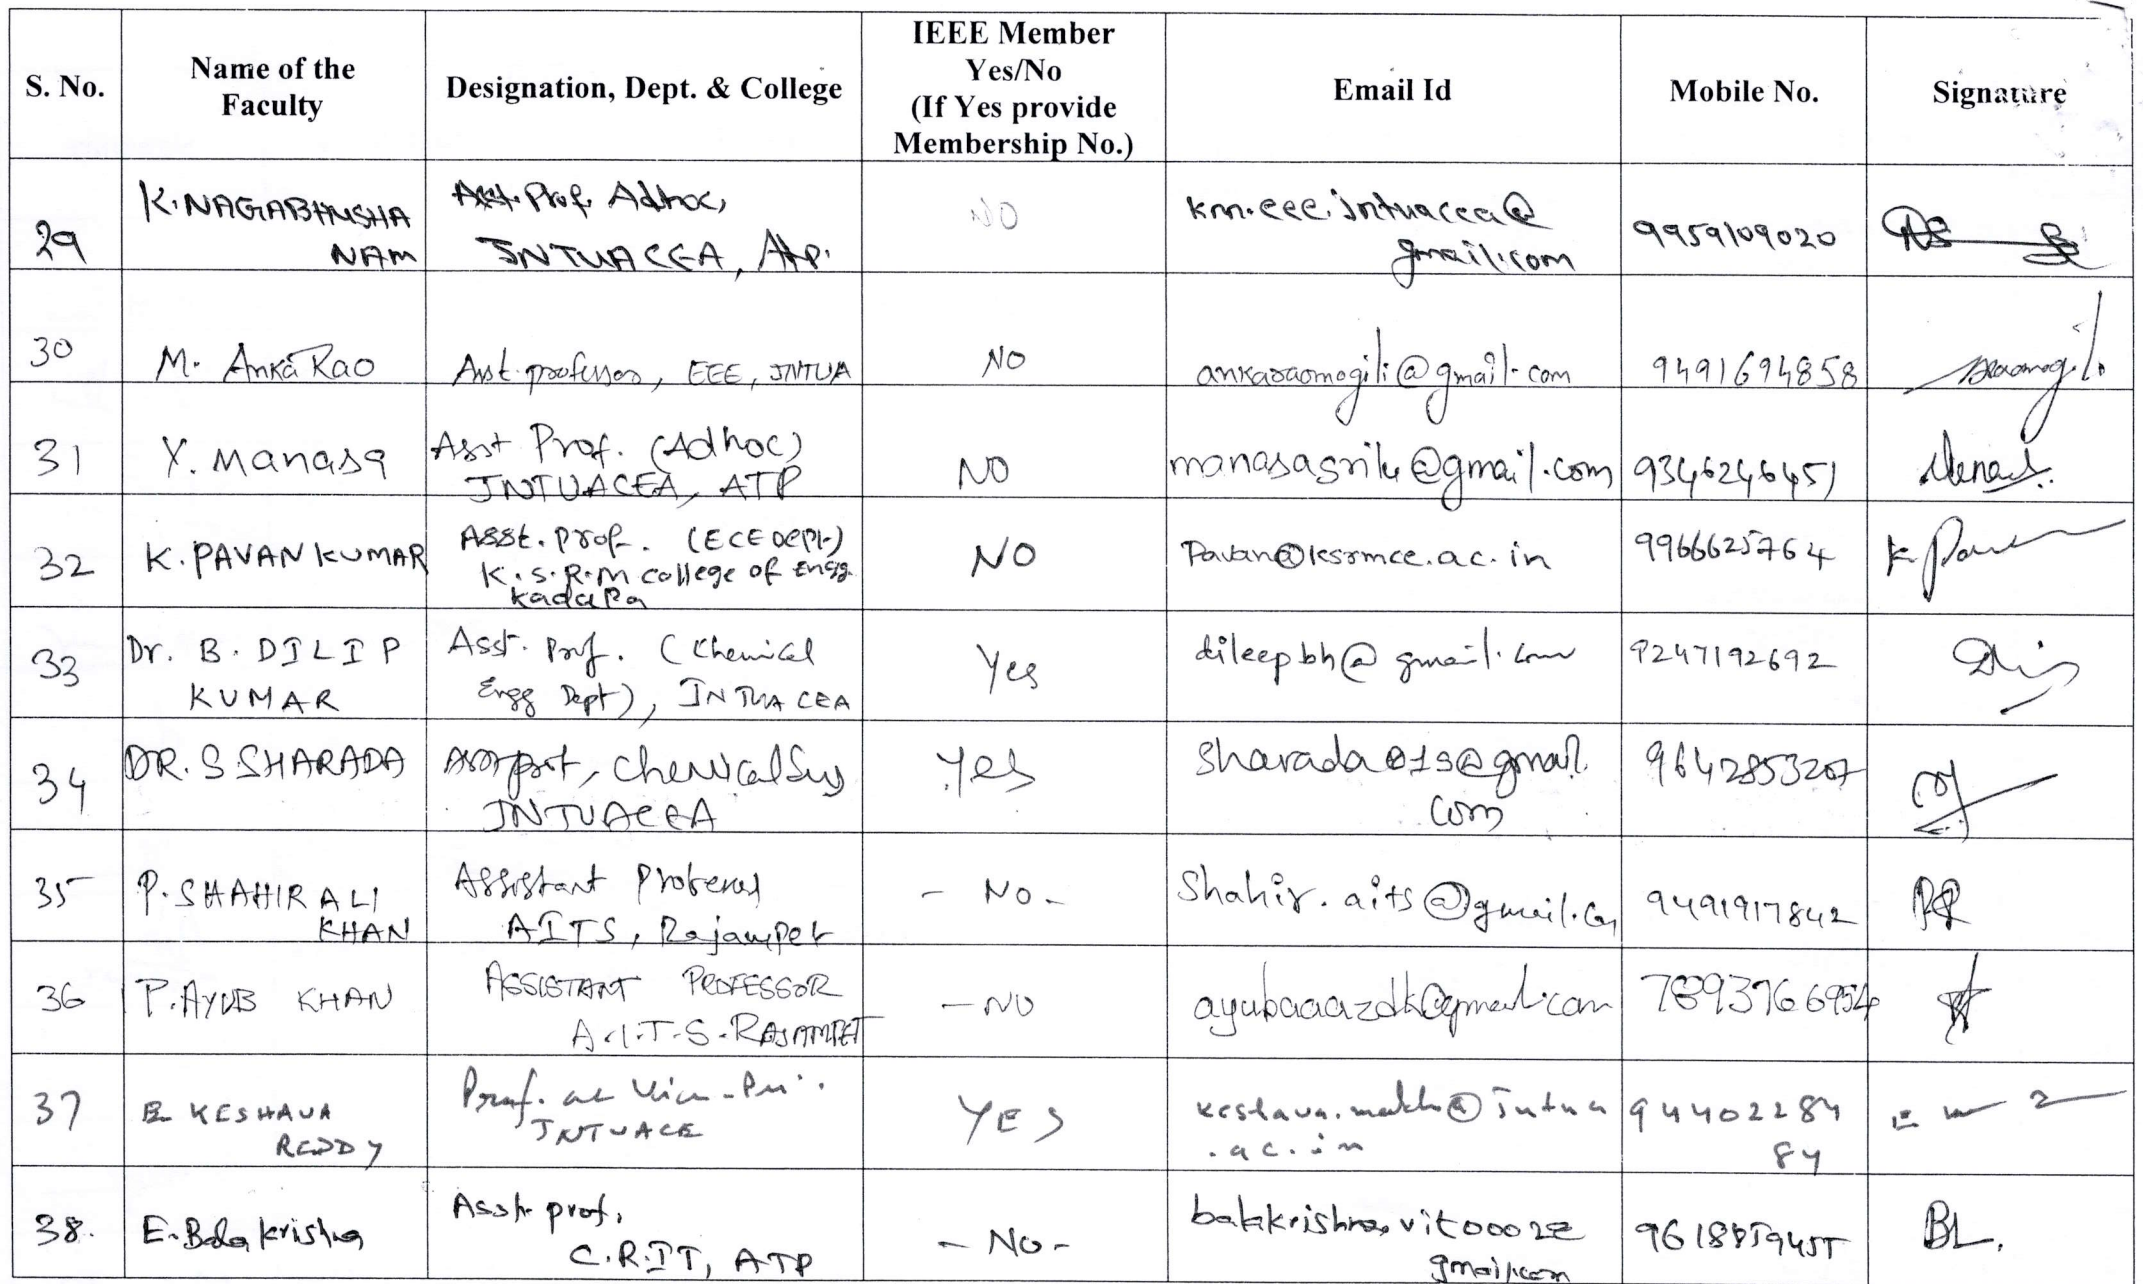 S. No. Name of the Faculty Designation, Dept. & College IEEE Member Yes/No (If Yes provide Membership No.) Email Id Mobile No. Signature
29 K. NAGABHUSHA NAM Asst. Prof. Adhoc, JNTUACEA, Atp. NO km.eee.jntuacea@ gmail.com 9959109020
30 M. Anka Rao Asst professor, EEE, JNTUA NO ankaraomogili@gmail.com 9491694858
31 Y. Manasa Asst Prof. (Adhoc) JNTUACEA, ATP NO manasasrilu@gmail.com 9346246451
32 K. PAVAN KUMAR Asst. prof. (ECE Dept.) K.S.R.M college of Engg. Kadapa NO Pavan@ksrmce.ac.in 9966625764
33 Dr. B. DILIP KUMAR Asst. Prof. (Chemical Engg Dept), JNTUACEA Yes dileepbh@gmail.com 9247192692
34 DR. S SHARADA JNTUACEA yes Sharada01s@gmail. com 9642853207
35 P. SHAHIR ALI KHAN Assistant Professor AITS, Rajampet - No - Shahir.aits@gmail.com 9491917842
36 P. AYUB KHAN ASSISTANT PROFESSOR A.I.T.S. RAJAMPET - NO 
37 E KESHAVA REDDY Prof. JNTUACE YES .ac.in 94402284 84
38. E. Bala krishna Asst. prof, C.R.IT, ATP - No - gmail.com BL.